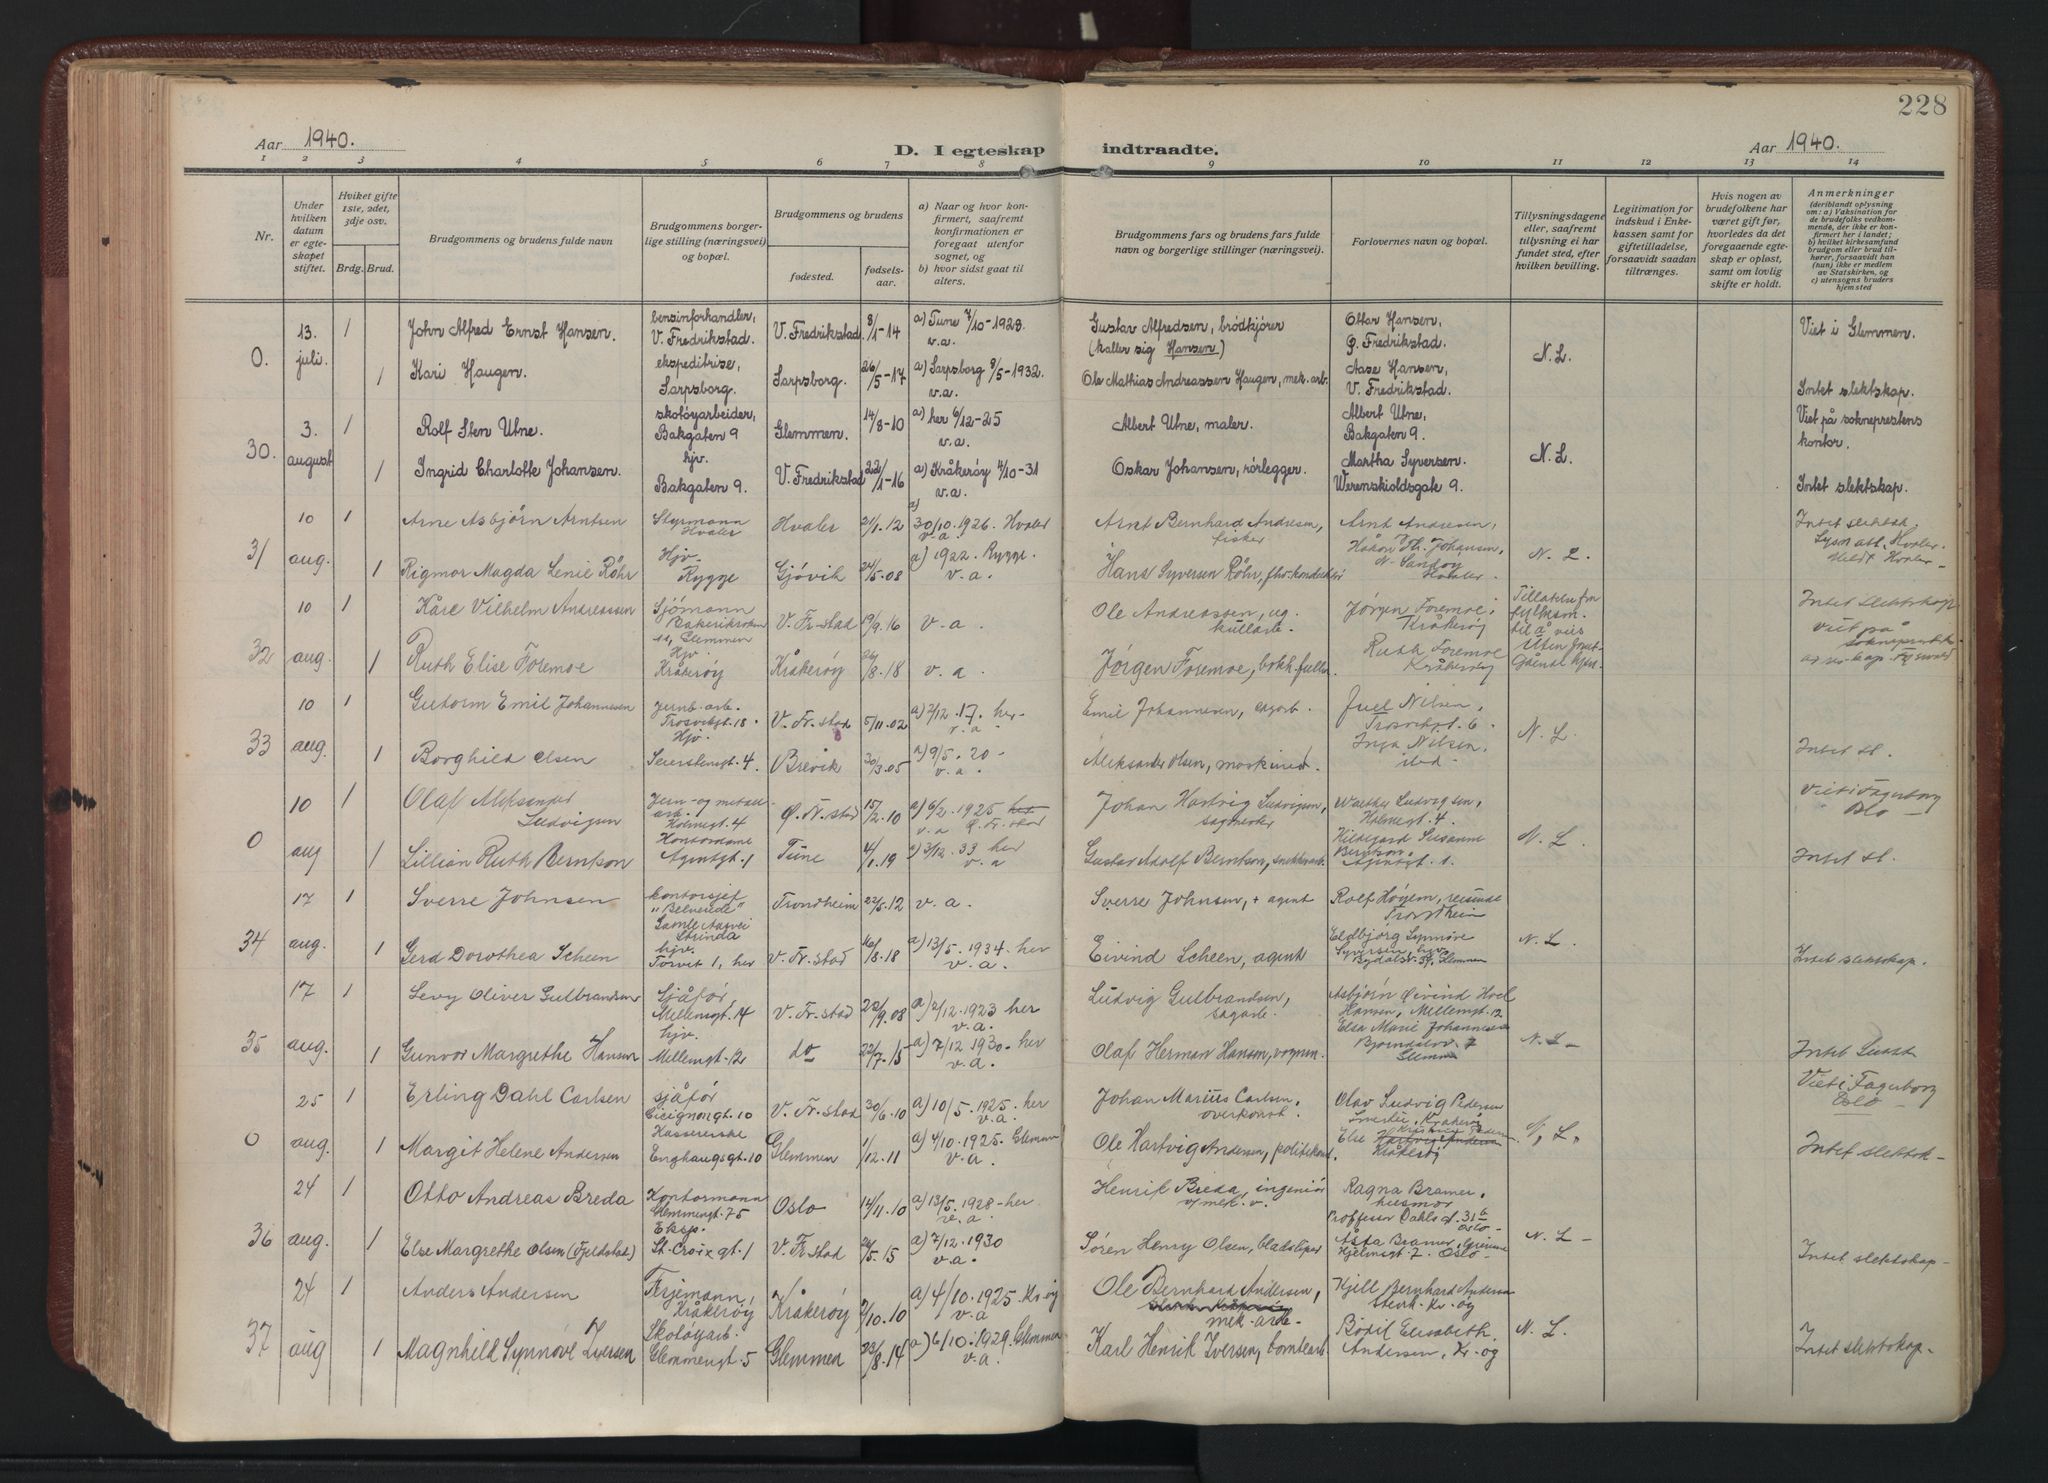 228
Aar 1940.
D. I egteskap indtraadte.
Aar 1940.
1 2 3 4 5 6 7 8 9 10 11 12 13 14
Nr.
Under hvilken datum er egteskapet stiftet.
Hvilket gifte 1ste, 2det, 3dje osv.
Brdg. Brud.
Brudgommens og brudens fulde navn
Brudgommens borgerlige stilling (næringsvei) og bopæl.
Brudgommens og brudens
fødested. fødselsaar.
a) Naar og hvor konfirmert, saafremt konfirmationen er foregaat utenfor sognet, og
b) hvor sidst gaat til alters.
Brudgommens fars og brudens fars fulde navn og borgerlige stillinger (næringsvei).
Forlovernes navn og bopæl.
Tillysningsdagene eller, saafremt tillysning ei har fundet sted, efter hvilken bevilling.
Legitimation for indskud i Enkekassen samt for giftetilladelse, forsaavidt saadan tiltrænges.
Hvis nogen av brudefolkene har været gift før, hvorledes da det foregaaende egteskap er opløst, samt om lovlig skifte er holdt.
Anmerkninger (deriblandt oplysning om: a) Vaksination for de brudefolks vedkommende, der ikke er konfirmert her i landet; b) hvilket kirkesamfund brudgom eller brud tilhører, forsaavidt han (hun) ikke er medlem av Statskirken, og c) utensogns bruders hjemsted
0. 13. juli. 1 John Alfred Ernst Hansen. bensinforhandler, V. Fredrikstad. V. Fredrikstad 8/1-14 a) Tune 7/10-1928. v.a. Gustav Alfredsen, brødkjører (kaller sig Hansen) Ottar Hansen, Ø. Fredrikstad. N.L. Viet i Glemmen.
1 Kari Haugen. ekspeditrise, Sarpsborg. Sarpsborg. 26/5-17 a) Sarpsborg 8/5-1932. v.a. Ole Mathias Andreassen Haugen, mek. arb. Aase Hansen, V. Fredrikstad. Intet slektskap.
30. 3. august 1 Rolf Sten Utne. skotøyarbeider, Bakgaten 9 Glemmen. 14/8-10 a) her 6/12-25 v.a. Albert Utne, maler. Albert Utne, Bakgaten 9. N.L. Viet på sokneprestens kontor.
1 Ingrid Charlotte Johansen. hjv. Bakgaten 9. V. Fredrikstad 22/1-16 a) Kråkerøy 4/10-31 v.a. Oskar Johansen, rørlegger. Martha Syversen. Werenskioldsgate 9. Intet slektskap.
31 10 aug. 1 Arne Asbjørn Arntsen Styrmann Hvaler Hvaler 21/1.12 a) 30/10.1926. Hvaler v.a. Arnt Bernhard Andresen, fisker Arnt Andresen, N. L. Intet slektsk. Lysn att. Hvaler. Meldt Hvaler
1 Rigmor Magda Lenie Røhr Hjv. Rygge Gjøvik 24/5.08 a) 1922. Rygge. v.a. Hans Syversen Røhr, Håkon Th. Johansen, N. Sandøy Hvaler.
32 10 aug. 1 Kåre Vilhelm Andreassen Sjømann Glemmen V. Fr-stad 19/9.16 v.a. Ole Andreassen, Jørgen Foremoe, Kråkerøy Tillatelse fra fylkesm. til å vies uten Intet slektskap Viet på
1 Ruth Elise Foremoe Hjv Kråkerøy Kråkerøy /8.18 v.a. Jørgen Foremoe, Ruth Foremoe Kråkerøy
33 10 aug. 1 Gutorm Emil Johannesen Jernb. arb. Trosvikgt. 18. V. Fr. stad 5/11.02 a) 2/12.17. her v.a Emil Johannesen, Juel Nilsen, Trosvikgt. 6. N. L.
1 Borghild Olsen Hjv. Seierstengt. 4. Brevik 30/3.05 a) 9/5.20 v.a. Aleksander Olsen, maskinist. Inga Nilsen, ibid Intet sl.
0 10 aug 1 Olaf Aleksander Ludvigsen Jern- og metall- arb. Holmegt. 4 Ø. Fr. stad 15/2.10 a) 6/2.1925 her v.a Ø. Fr. stad Johan Hartvig Ludvigsen, Walther Ludvigsen, Holmegt. 4. N. L. Viet i Fagerborg Oslo
1 Lillian Ruth Berntson Kontordame Agentgt. 1 Tune 4/1.19 a) 3/12.33 her v.a Gustav Adolf Berntson, Hildegard Susanne Berntson Agentgt. 1. Intet sl.
34 17 aug. 1 Sverre Johnsen kontorsjef Strinda Trondheim 22/5.12 v.a. Sverre Johnsen, + agent Rolf Høyem, reisende Trondheim N.L.
1 Gerd Dorothea Scheen hjv. Torvet 1, her V. Fr. stad 16/8.18 a) 13/5.1934. her v.a. Eivind Scheen, agent Eldbjørg Synnøve Syversen, hjv. Glemmen Intet slektskap.
35 17 aug. 1 Levy Oliver Gulbrandsen Sjåfør, Mellemgt. 14 V. Fr. stad 22/9.08 a) 2/12.1923 her v.a. Ludvig Gulbrandsen, sagarb. Asbjørn Øivind Hansen, Mellemgt. 12 N.L.
1 Gunvor Margrethe Hansen hjv. Mellemgt. 12 do 22/7.15 a) 7/12 1930. her v.a. Olaf Herman Hansen, Elsa Marie Johannesen Glemmen Intet
0 25 aug. 1 Erling Dahl Carlsen sjåfør Cicignongt. 10 V. Fr. stad 30/6.10 a) 10/5.1925. her v.a. Johan Marius Carlsen, overkonst. Olav Ludvig Pedersen Kråkerøy N. L. Viet i Fagerborg Oslo
1 Margit Helene Andersen Kassererske Enghaugsgt. 10 Glemmen 1/12.11 a) 4/10.1925. Glemmen v.a. Ole Hartvig Andersen, politikonst. Else Kråkerøy Intet slektsk-
36 24 aug. 1 Otto Andreas Breda Kontormann Glemmengt. 75 Oslo 14/11.10 a) 13/5.1928-her v.a. Henrik Breda, ingeniør v/mek. v. Ragna Bramer, husmor Proffesor Dahls gt. 31 b Oslo N. L -
1 Else Margrethe Olsen (Fjeldstad) Eksp. St. Croix gt. 1 V. Fr. stad 26/5.15 a) 7/12.1930 v.a. Søren Henry Olsen, Åsta Bramer, Hjelmsgt. 2. Oslo Intet slektskap-
37 24 aug 1 Anders Andersen Kråkerøy Kråkerøy 2/10.10 a) 4/10.1925. Kr.øy v.a Ole Bernhard Andersen, mek. arb. Kjell Bernhard Andersen Kr. øy N. L.
1 Magnhild Synnøve Iversen Skotøyarb. Glemmengt. 5 Glemmen 23/8.14 a) 6/10.1929. Glemmen v.a. Karl Henrik Iversen, Bodil Elisabeth Andersen, Kr. øy Intet slektskap.